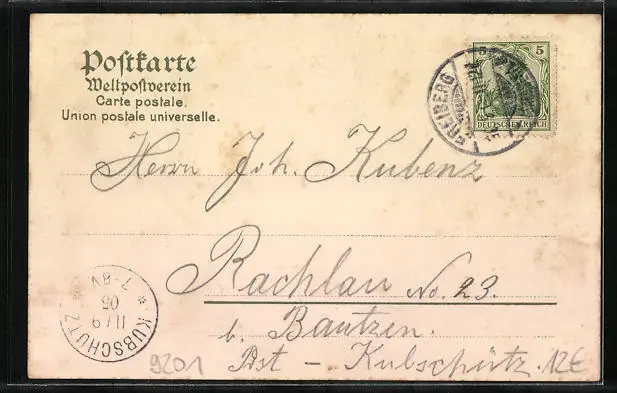 Postkarte
Weltpostverein
Carte postale.
Union postale universelle.
5 5
DEUTSCHES REICH
FREIBERG
Herrn Joh. Kubenz
Rachlau No. 23.
b. Bautzen.
Post – Kubschütz.
* KUBSCHÜTZ
11/9
05
7-8V
9201
12€